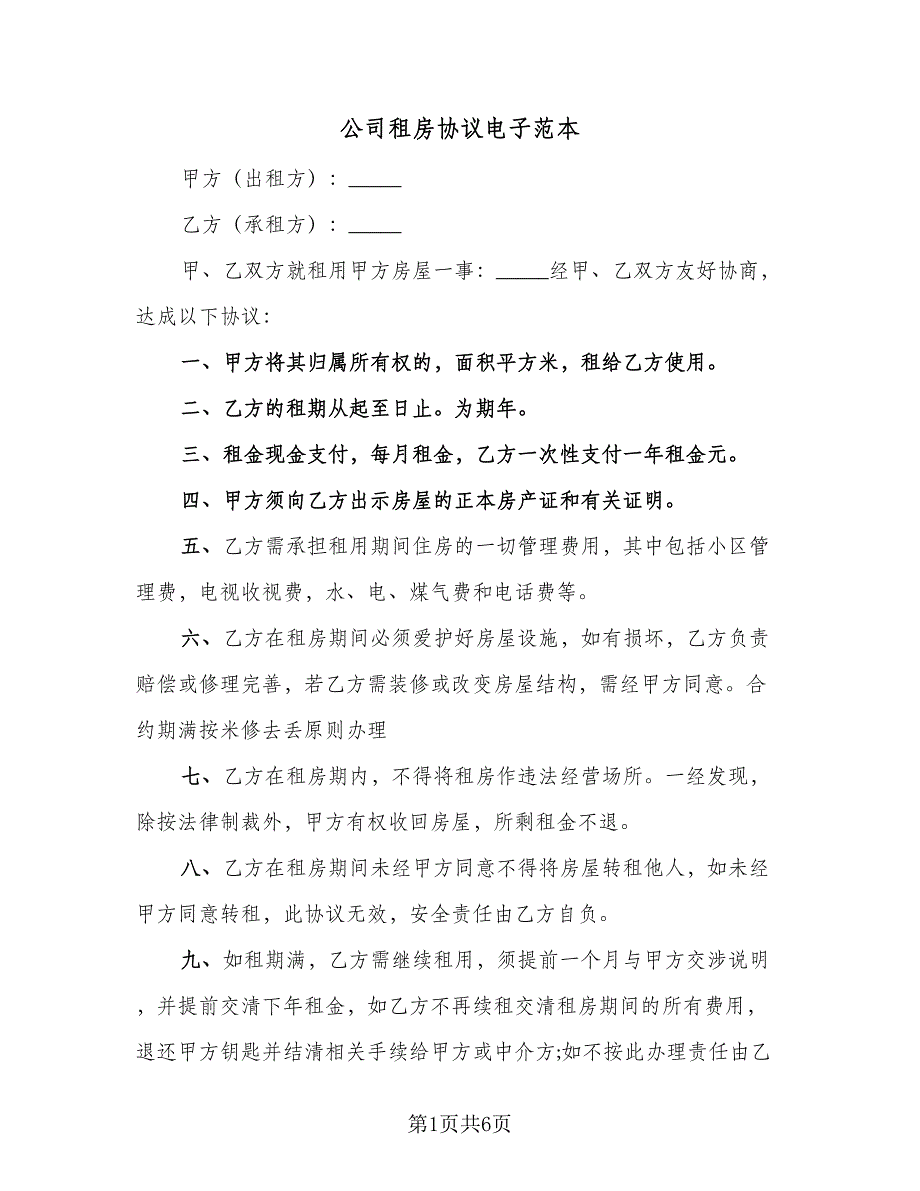 公司租房协议电子范本
甲方（出租方）：_____
乙方（承租方）：_____
甲、乙双方就租用甲方房屋一事：_____经甲、乙双方友好协商，
达成以下协议：
一、甲方将其归属所有权的，面积平方米，租给乙方使用。
二、乙方的租期从起至日止。为期年。
三、租金现金支付，每月租金，乙方一次性支付一年租金元。
四、甲方须向乙方出示房屋的正本房产证和有关证明。
五、乙方需承担租用期间住房的一切管理费用，其中包括小区管
理费，电视收视费，水、电、煤气费和电话费等。
六、乙方在租房期间必须爱护好房屋设施，如有损坏，乙方负责
赔偿或修理完善，若乙方需装修或改变房屋结构，需经甲方同意。合
约期满按米修去丢原则办理
七、乙方在租房期内，不得将租房作违法经营场所。一经发现，
除按法律制裁外，甲方有权收回房屋，所剩租金不退。
八、乙方在租房期间未经甲方同意不得将房屋转租他人，如未经
甲方同意转租，此协议无效，安全责任由乙方自负。
九、如租期满，乙方需继续租用，须提前一个月与甲方交涉说明
，并提前交清下年租金，如乙方不再续租交清租房期间的所有费用，
退还甲方钥匙并结清相关手续给甲方或中介方;如不按此办理责任由乙
第1页共6页